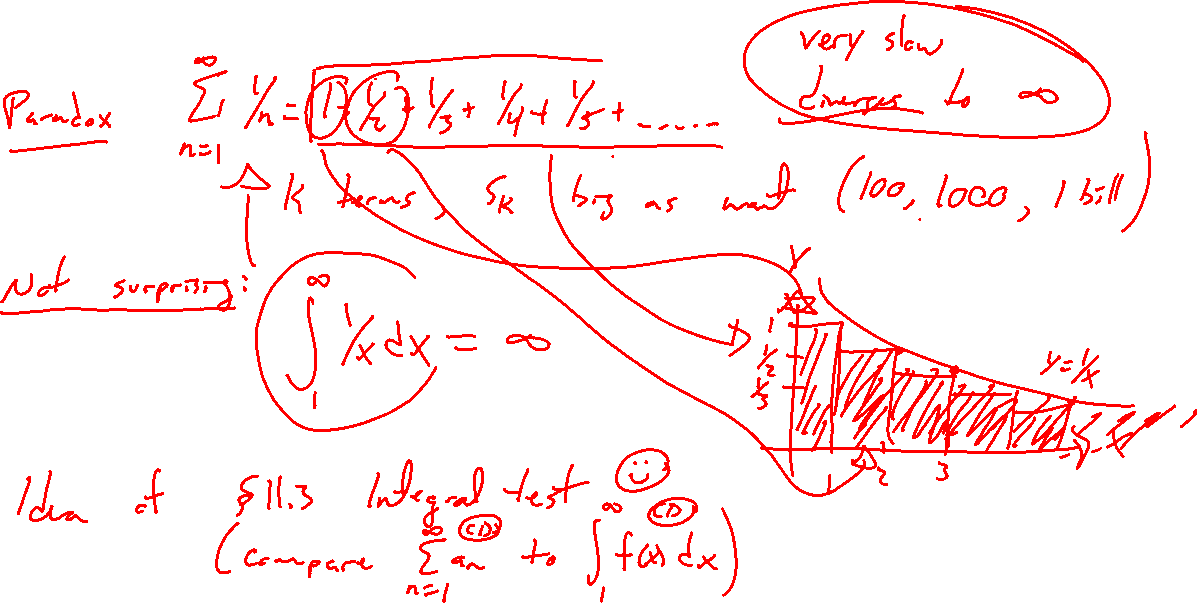 very slow
Paradox ∞ Σ n=1 1/n = 1 + 1/2 + 1/3 + 1/4 + 1/5 + ...... diverges to ∞
k terms, Sk big as want (100, 1000, 1 bill)
Not surprising: ∞ ∫ 1 1/x dx = ∞
Y
1
1/2
1/3
y=1/x
1 2 3
Idea of §11.3 Integral test
(compare ∞ Σ n=1 an to ∞ ∫ 1 f(x) dx)
CD CD